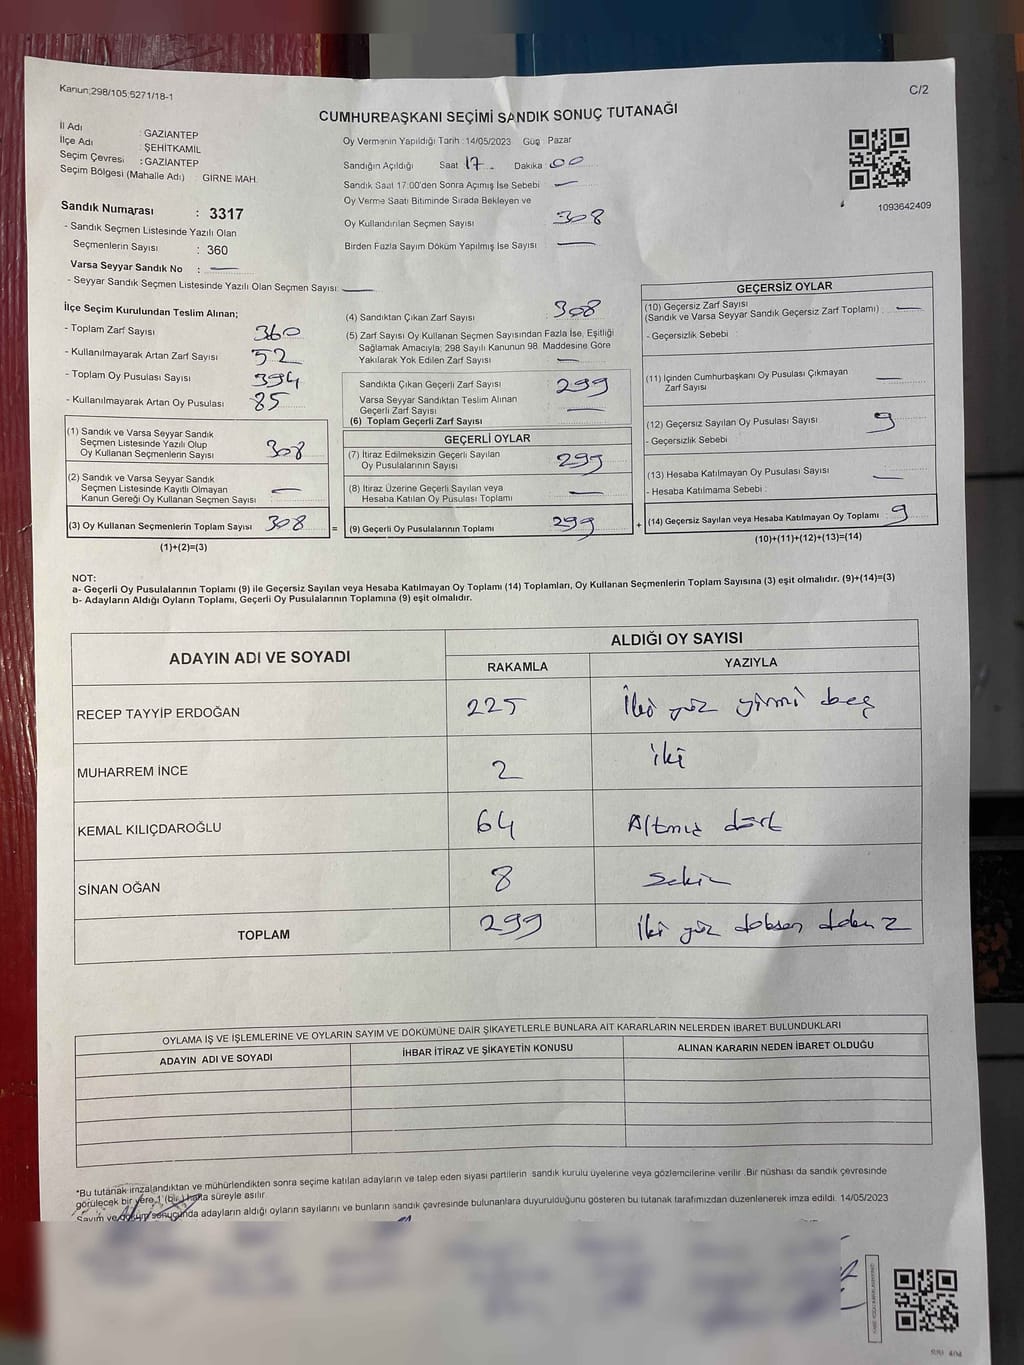 Kanun;298/105;6271/18-1
C/2
CUMHURBAŞKANI SEÇİMİ SANDIK SONUÇ TUTANAĞI
İl Adı : GAZIANTEP
İlçe Adı : ŞEHİTKAMIL
Seçim Çevresi : GAZIANTEP
Seçim Bölgesi (Mahalle Adı) : GIRNE MAH.
Sandık Numarası : 3317
- Sandık Seçmen Listesinde Yazılı Olan
Seçmenlerin Sayısı : 360
Varsa Seyyar Sandık No : —
- Seyyar Sandık Seçmen Listesinde Yazılı Olan Seçmen Sayısı: —
Oy Vermenin Yapıldığı Tarih :14/05/2023 Gün Pazar
Sandığın Açıldığı Saat 17 Dakika 00
Sandık Saat 17:00'den Sonra Açımış İse Sebebi —
Oy Verme Saati Bitiminde Sırada Bekleyen ve
Oy Kullandırılan Seçmen Sayısı 308
Birden Fazla Sayım Döküm Yapılmış İse Sayısı —
1093642409
İlçe Seçim Kurulundan Teslim Alınan;
- Toplam Zarf Sayısı 360
- Kullanılmayarak Artan Zarf Sayısı 52
- Toplam Oy Pusulası Sayısı 394
- Kullanılmayarak Artan Oy Pusulası 85
(1) Sandık ve Varsa Seyyar Sandık
Seçmen Listesinde Yazılı Olup
Oy Kullanan Seçmenlerin Sayısı 308
(2) Sandık ve Varsa Seyyar Sandık
Seçmen Listesinde Kayıtlı Olmayan
Kanun Gereği Oy Kullanan Seçmen Sayısı —
(3) Oy Kullanan Seçmenlerin Toplam Sayısı 308 =
(1)+(2)=(3)
(4) Sandıktan Çıkan Zarf Sayısı 308
(5) Zarf Sayısı Oy Kullanan Seçmen Sayısından Fazla İse, Eşitliği
Sağlamak Amacıyla; 298 Sayılı Kanunun 98. Maddesine Göre
Yakılarak Yok Edilen Zarf Sayısı —
Sandıkta Çıkan Geçerli Zarf Sayısı 299
Varsa Seyyar Sandıktan Teslim Alınan
Geçerli Zarf Sayısı —
(6) Toplam Geçerli Zarf Sayısı
GEÇERLİ OYLAR
(7) İtiraz Edilmeksizin Geçerli Sayılan
Oy Pusulalarının Sayısı 299
(8) İtiraz Üzerine Geçerli Sayılan veya
Hesaba Katılan Oy Pusulası Toplamı —
(9) Geçerli Oy Pusulalarının Toplamı 299 +
GEÇERSİZ OYLAR
(10) Geçersiz Zarf Sayısı
(Sandık ve Varsa Seyyar Sandık Geçersiz Zarf Toplamı) : —
- Geçersizlik Sebebi :
(11) İçinden Cumhurbaşkanı Oy Pusulası Çıkmayan
Zarf Sayısı —
(12) Geçersiz Sayılan Oy Pusulası Sayısı 9
- Geçersizlik Sebebi
(13) Hesaba Katılmayan Oy Pusulası Sayısı —
- Hesaba Katılmama Sebebi :
(14) Geçersiz Sayılan veya Hesaba Katılmayan Oy Toplamı 9
(10)+(11)+(12)+(13)=(14)
NOT:
a- Geçerli Oy Pusulalarının Toplamı (9) ile Geçersiz Sayılan veya Hesaba Katılmayan Oy Toplamı (14) Toplamları, Oy Kullanan Seçmenlerin Toplam Sayısına (3) eşit olmalıdır. (9)+(14)=(3)
b- Adayların Aldığı Oyların Toplamı, Geçerli Oy Pusulalarının Toplamına (9) eşit olmalıdır.
ADAYIN ADI VE SOYADI
ALDIĞI OY SAYISI
RAKAMLA YAZIYLA
RECEP TAYYIP ERDOĞAN 225 İki yüz yirmi beş
MUHARREM İNCE 2 iki
KEMAL KILIÇDAROĞLU 64 Altmış dört
SİNAN OĞAN 8 Sekiz
TOPLAM 299 İki yüz doksan dokuz
OYLAMA İŞ VE İŞLEMLERINE VE OYLARIN SAYIM VE DÖKÜMÜNE DAİR ŞİKAYETLERLE BUNLARA AİT KARARLARIN NELERDEN İBARET BULUNDUKLARI
ADAYIN ADI VE SOYADI İHBAR İTİRAZ VE ŞİKAYETİN KONUSU ALINAN KARARIN NEDEN İBARET OLDUĞU
*Bu tutanak imzalandıktan ve mühürlendikten sonra seçime katılan adayların ve talep eden siyasi partilerin sandık kurulu üyelerine veya gözlemcilerine verilir. Bir nüshası da sandık çevresinde
görülecek bir yere 1 (bir) hafta süreyle asılır.
Sayım ve döküm sonucunda adayların aldığı oyların sayılarını ve bunların sandık çevresinde bulunanlara duyurulduğunu gösteren bu tutanak tarafımızdan düzenlenerek imza edildi. 14/05/2023